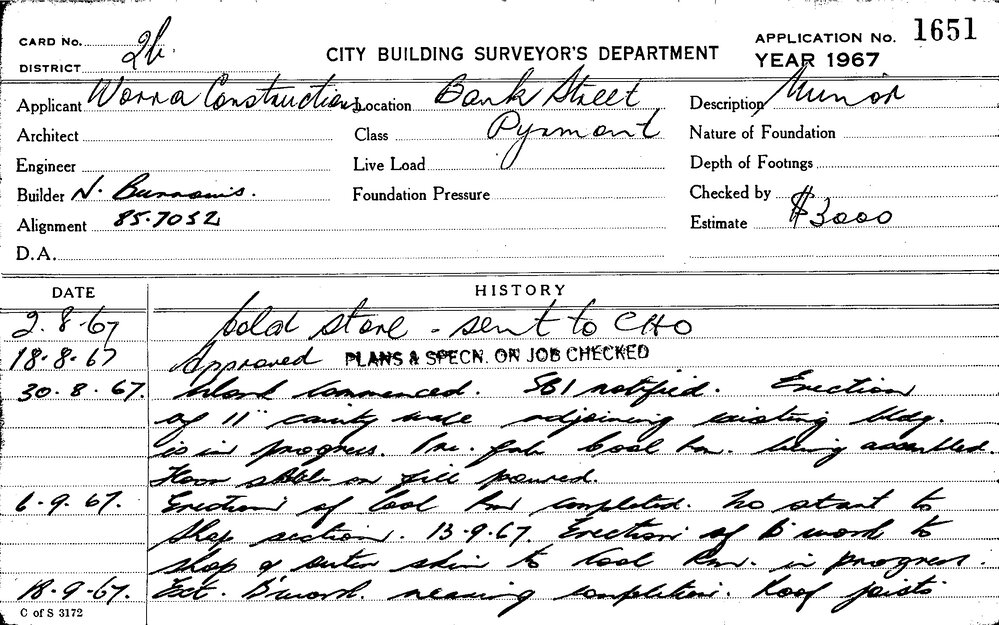 CARD No. 2b. CITY BUILDING SURVEYOR'S DEPARTMENT APPLICATION No. 1651
DISTRICT YEAR 1967
Applicant Worra Constructions Location Bank Street Description Minor
Architect Class Pyrmont Nature of Foundation
Engineer Live Load Depth of Footings
Builder N. Burrows. Foundation Pressure Checked by
Alignment 85.7052 Estimate $3000
D.A.
DATE HISTORY
2.8.67 Cold store - sent to CHO
18.8.67 Approved PLANS & SPECN. ON JOB CHECKED
30.8.67. Work commenced. SBI notified. Erection
of 11" cavity walls adjoining existing bldg.
is in progress. Pre. fab. Cool Rm. being assembled.
Floor slab on fill poured.
6.9.67. Erection of Cool Rm completed. No start to
shop section. 13.9.67. Erection of B'word to
shop & outer skin to Cool Rm. in progress.
18.9.67. Ext. B'word. nearing completion. Roof joists
C of S 3172